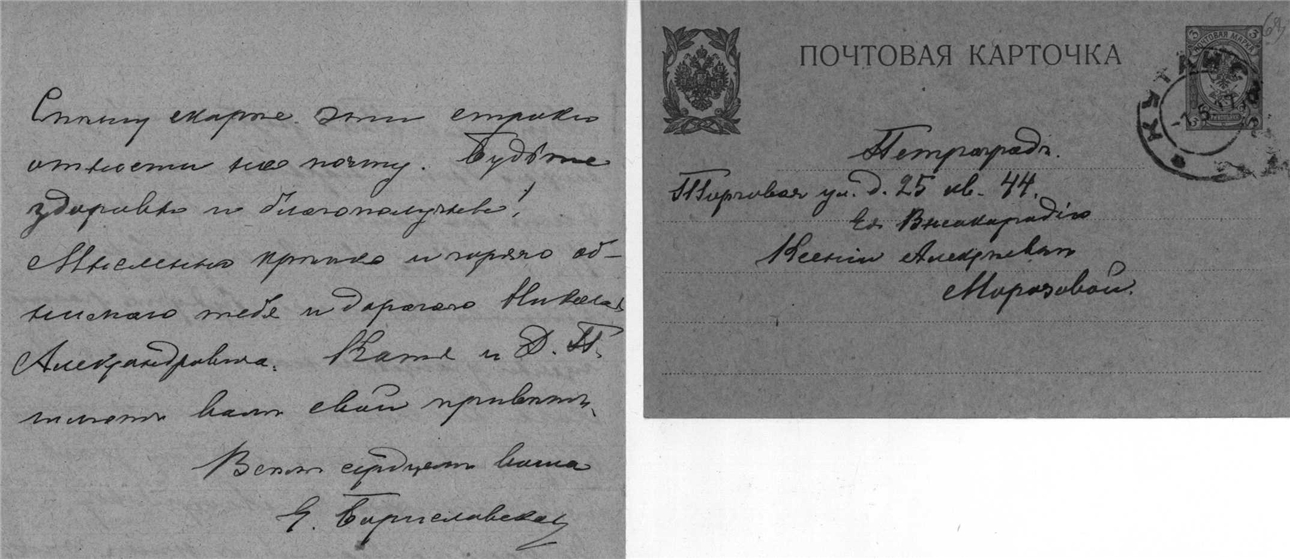 Спѣшу скорѣе эти строки
отнести на почту. Будьте
здоровы и благополучны!
Мысленно крѣпко и горячо об-
нимаю тебя и дорогого Никола
Александровича. Катя и Д. П.
шлютъ вамъ свой привѣтъ.
Всѣмъ сердцемъ ваша
Е. Бориславская
ПОЧТОВАЯ КАРТОЧКА
3 ПОЧТОВАЯ МАРКА 3
Петроградъ.
Торговая ул. д. 25 кв. 44.
Ея Высокородію
Ксеніи Алексѣевнѣ
Морозовой.